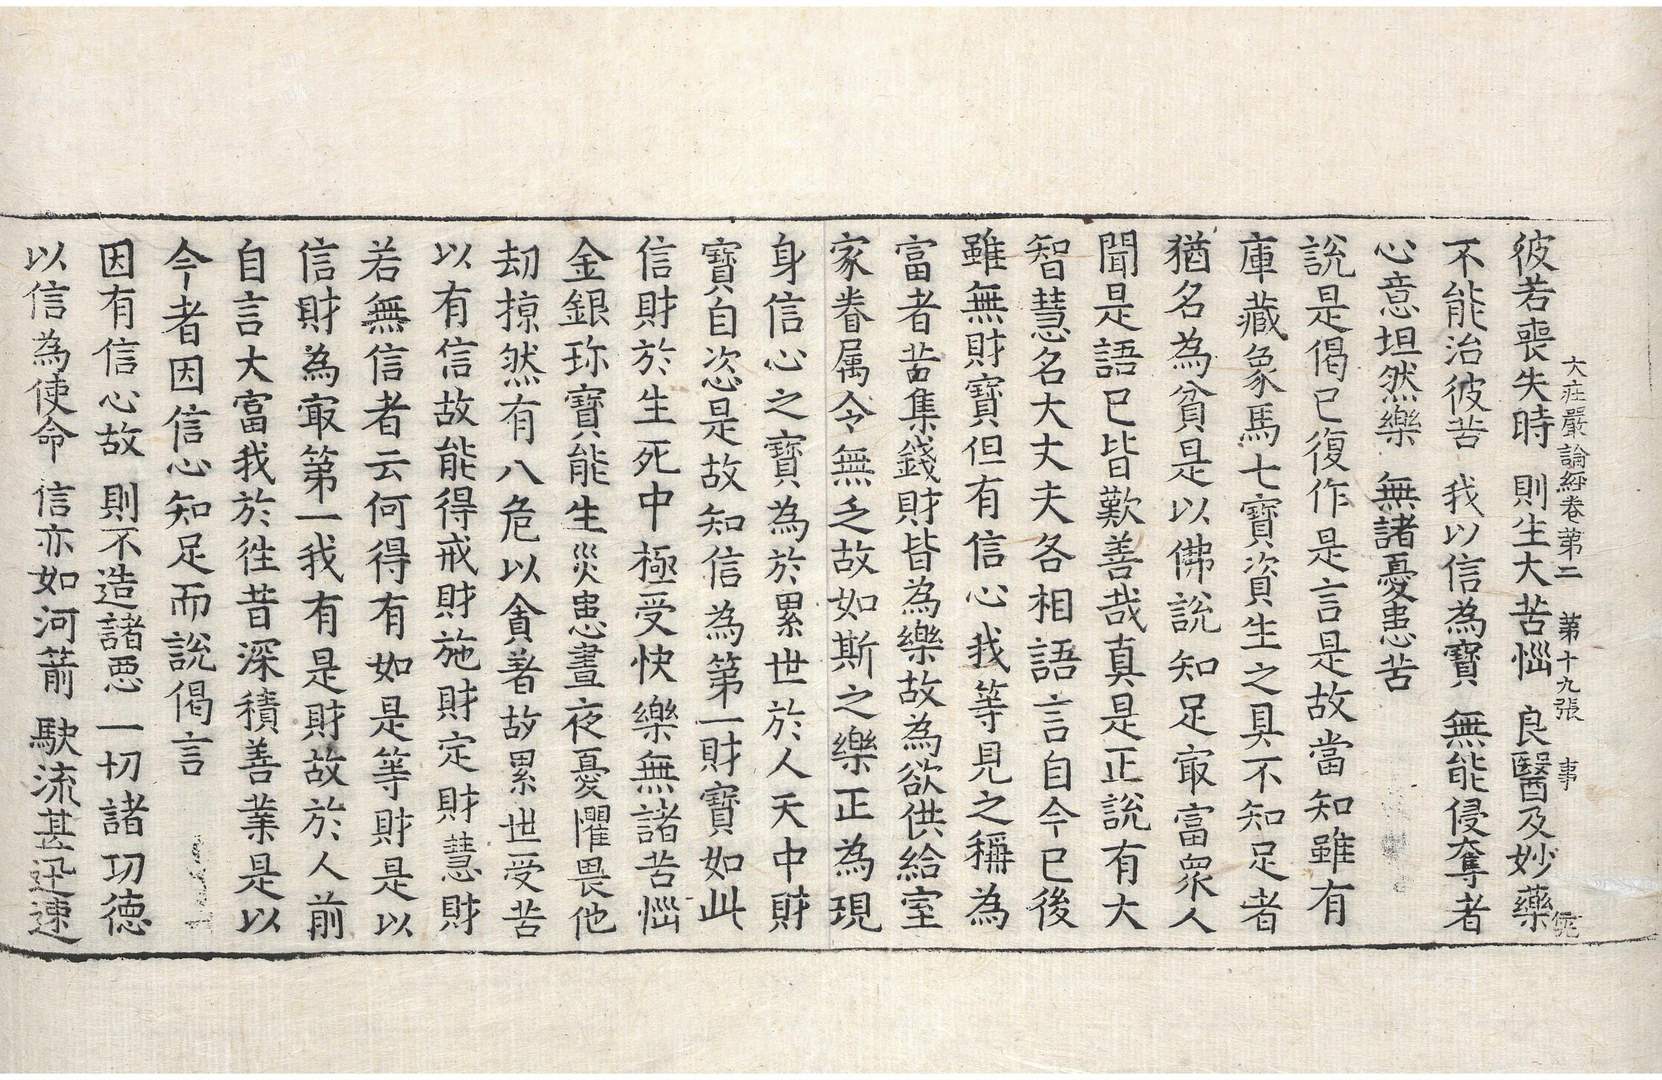 大莊嚴論經卷第二　第十九張　事
彼若喪失時　則生大苦惱　良醫及妙藥
不能治彼苦　我以信為寶　無能侵奪者
心意坦然樂　無諸憂患苦
說是偈已復作是言是故當知雖有
庫藏象馬七寶資生之具不知足者
猶名為貧是以佛說知足㝡富衆人
聞是語已皆歎善哉真是正說有大
智慧名大丈夫各相語言自今已後
雖無財寶但有信心我等見之稱為
富者苦集錢財皆為樂故為欲供給室
家眷属令無乏故如斯之樂正為現
身信心之寶為於累世於人天中財
寶自恣是故知信為第一財寶如此
信財於生死中極受快樂無諸苦惱
金銀珎寶能生災患晝夜憂懼畏他
刧掠然有八危以貪著故累世受苦
以有信故能得戒財施財定財慧財
若無信者云何得有如是等財是以
信財為㝡第一我有是財故於人前
自言大富我於徃昔深積善業是以
今者因信心知足而說偈言
因有信心故　則不造諸惡　一切諸功德
以信為使命　信亦如河箭　駛流甚迅速